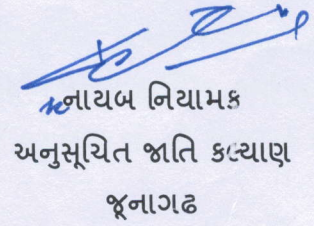 નાયબ નિયામક
અનુસૂચિત જાતિ કલ્યાણ
જૂનાગઢ